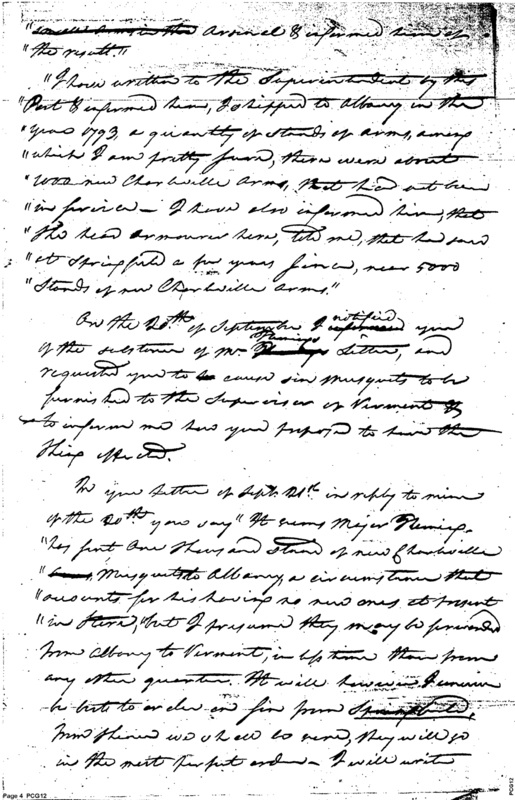 Arsenal & informed him of
"the result."
"I have written to the Superintendent by this
"Post & informed him, I shipped to Albany in the
"year 1793, a quantity of stands of arms, among
"which I am pretty sure, there were about
"1000 new Charleville Arms, that had not been
"in service — I have also informed him, that
"the head armourer here, told me, that he saw
"at Springfield a few years since, near 5000
"Stands of new Charleville Arms."
On the 20th of September I notified you
of the substance of Mr Flemings Letter, and
requested you to cause six musquets to be
furnished to the Supervisor of Vermont &
to inform me how you proposed to have the
thing effected.
In your Letter of Sept. 21st in reply to mine
of the 20th you say "It seems Major Fleming
"has sent One thousand stand of new Charleville
Musquets to Albany, a circumstance that
"accounts for his having no new ones at present
"in Store, but I presume they may be forwarded
from Albany to Vermont, in less time than from
any other quarter. It will however I conceive
be best to order on six from Springfield,
from thence we shall be sure, they will go
in the most perfect order — I will write
Page 4 PCG12
PCG12